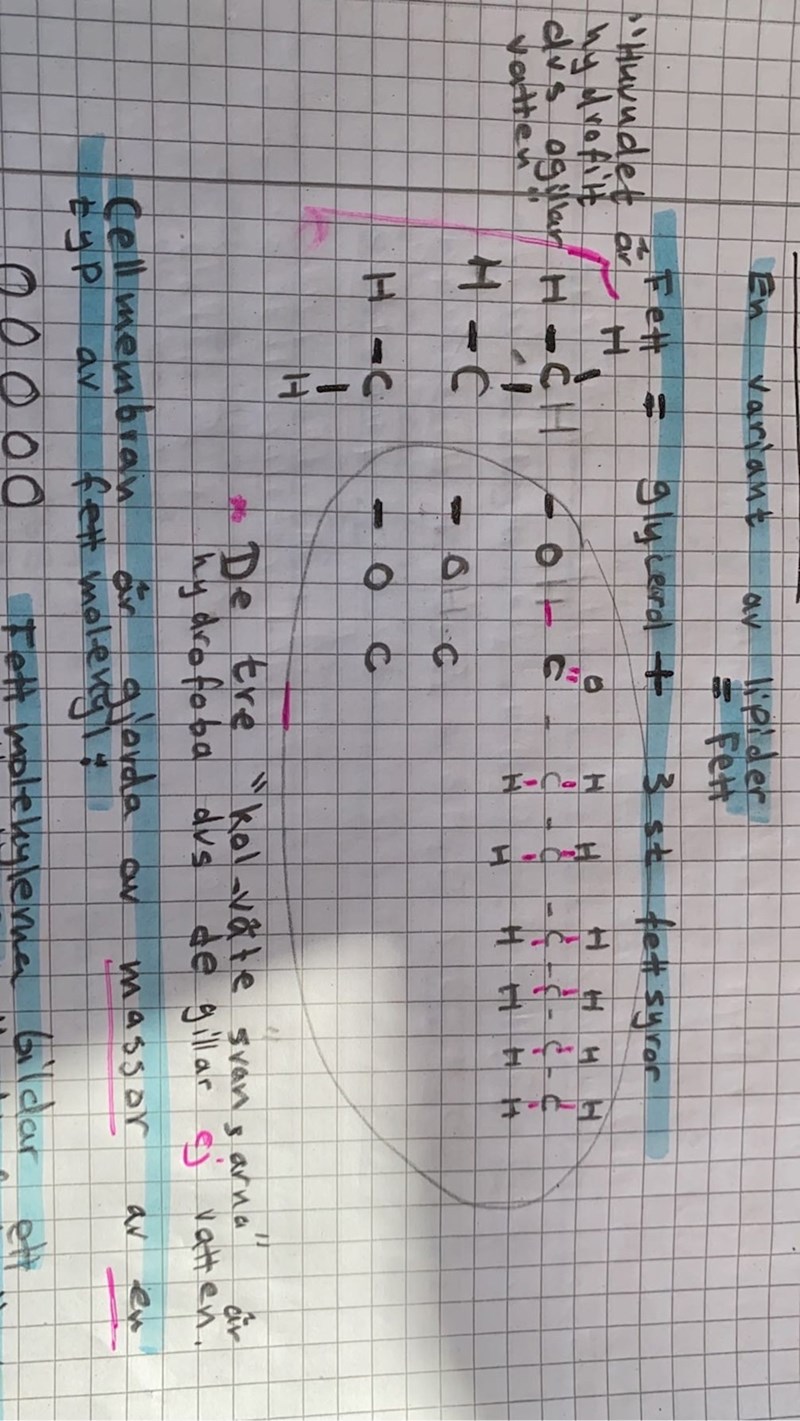 En variant av lipider
= Fett
Fett = glycerol + 3 st fettsyror
"Huvudet är
hydrofilt
dvs ogillar
vatten"
H
O H H H H H H
H - C H - O H - C - C - C - C - C - C - C
H H H H H H
H - C - O H - C
H - C - O C
H
* De tre "kol-väte svansarna" är
hydrofoba dvs de gillar ej vatten.
Cellmembran är gjorda av massor av en
typ av fettmolekyl:
O O O O O
Fettmolekylerna bildar ett